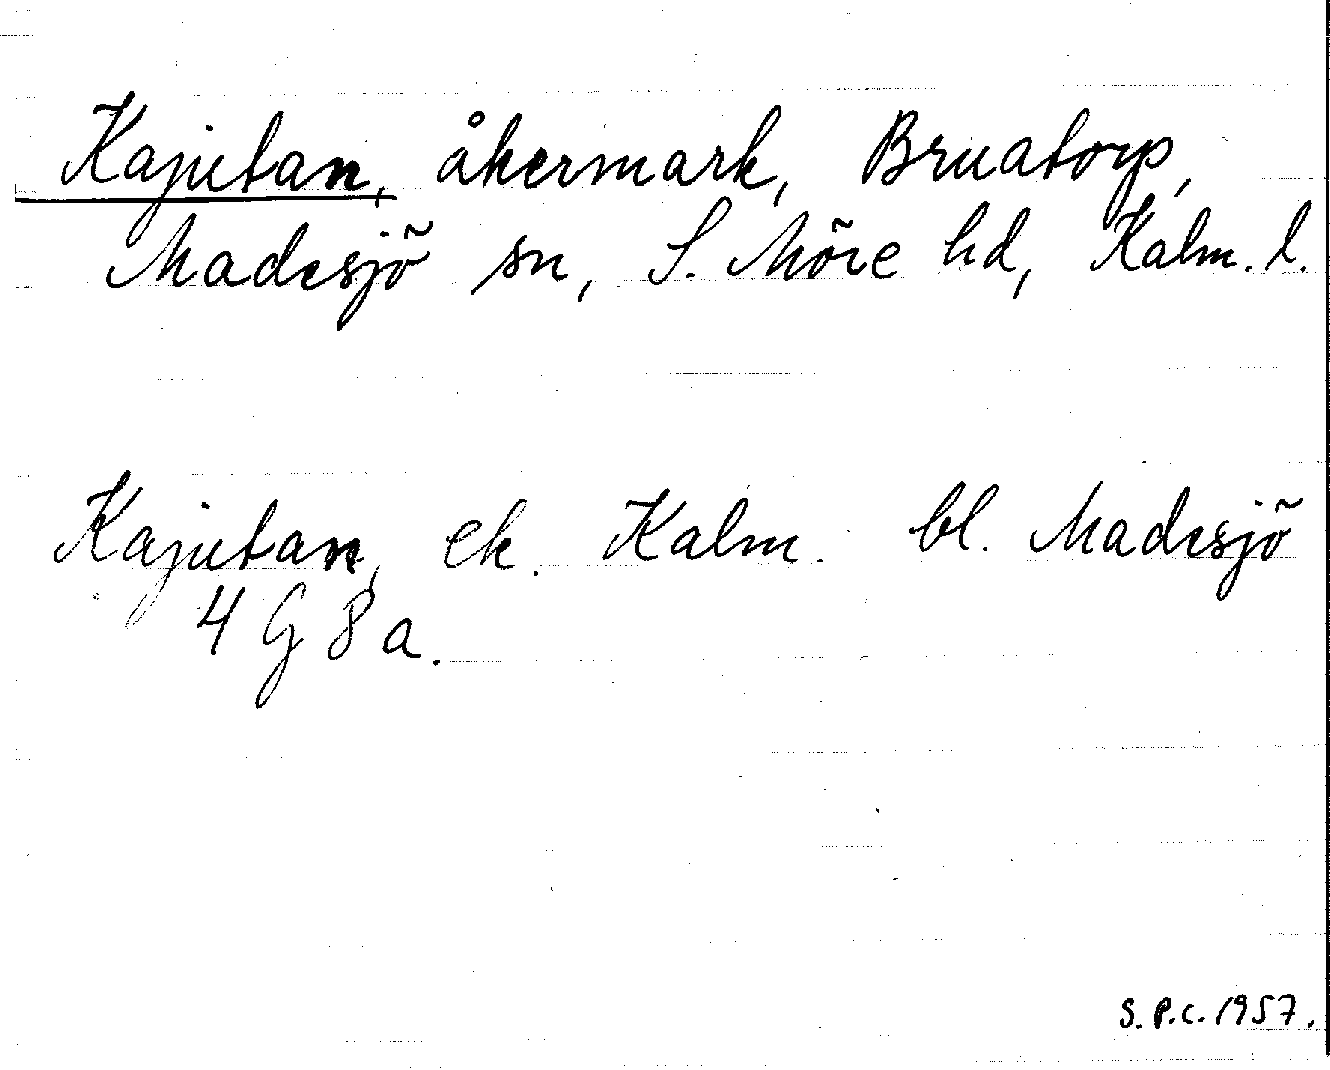 Kajutan, åkermark, Bruatorp,
Madesjö sn, S. Möre hd, Kalm. l.
Kajutan, ek. Kalm. bl. Madesjö
4 G 8 a.
S.P.C. 1957.